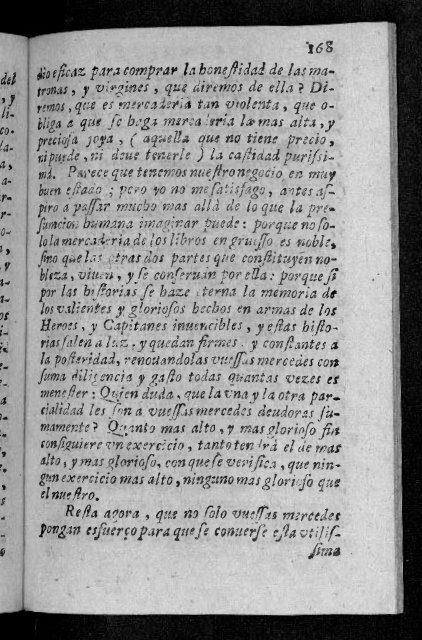 168
dio eficaz para comprar la honestidad de las ma-
tronas, y virgines, que diremos de ella? Di-
remos, que es mercaderia tan violenta, que o-
bliga a que se haga mercaderia la mas alta, y
preciosa joya, (aquella que no tiene precio,
ni puede, ni deue tenerle) la castidad purissi-
ma. Parece que tenemos nuestro negocio en muy
buen estado; pero yo no me satisfago, antes as-
piro a passar mucho mas allà de lo que la pre-
suncion humana imaginar puede: porque no so-
lo la mercaderia de los libros en gruesso es noble,
sino que las otras dos partes que constituyen no-
bleza, viuen, y se conseruan por ella: porque si
por las historias se haze eterna la memoria de
los valientes y gloriosos hechos en armas de los
Heroes, y Capitanes inuencibles, y estas histo-
rias salen a luz, y quedan firmes, y constantes a
la posteridad, renouandolas vuessas mercedes con
suma diligencia y gasto todas quantas vezes es
menester: Quien duda, que la vna y la otra par-
cialidad les son a vuessas mercedes deudoras su-
mamente? Quanto mas alto, y mas glorioso fin
consiguiere vn exercicio, tanto tendrà el de mas
alto, y mas glorioso, con que se verifica, que nin-
gun exercicio mas alto, ninguno mas glorioso que
el nuestro.
Resta agora, que no solo vuessas mercedes
pongan esfuerço para que se conuerse esta vtilis-
sima